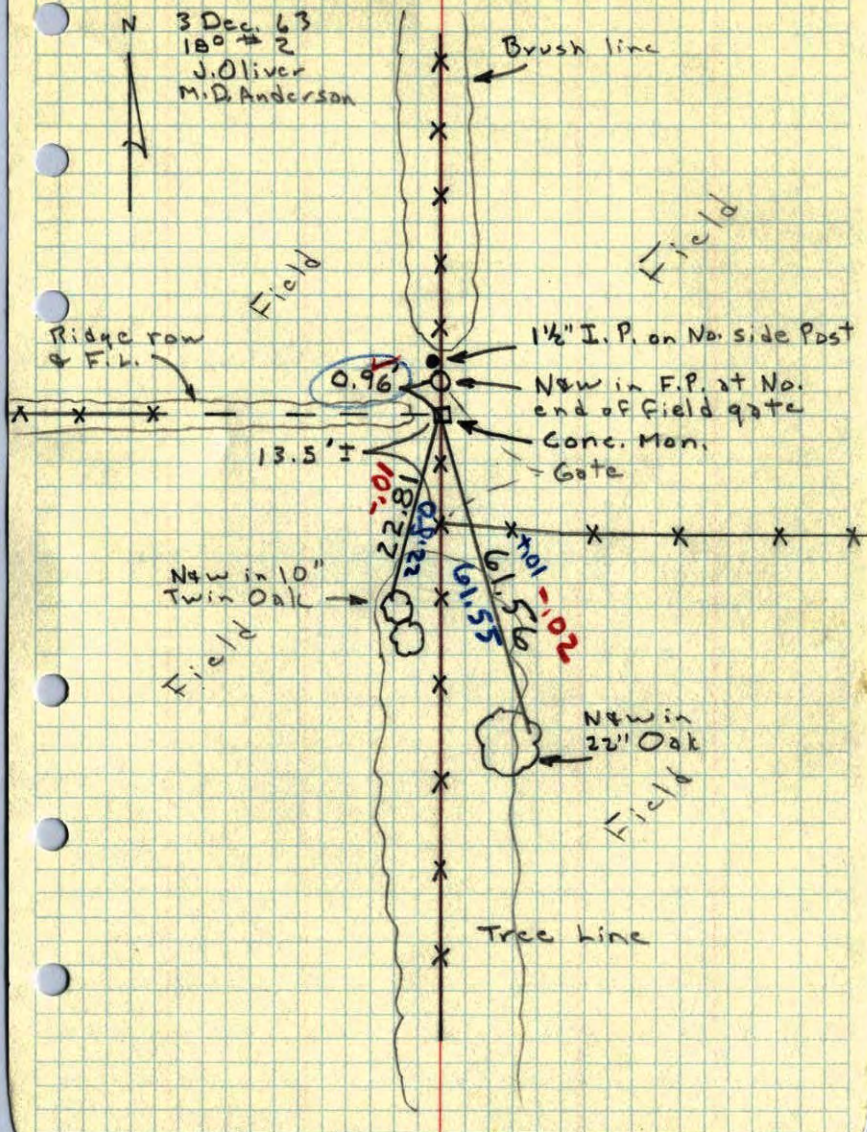 N
3 Dec. 63
18° #2
J. Oliver
M.D. Anderson
Brush line
Field
Field
Ridge row
& F.L.
0.96'
1½" I.P. on No. side Post
N&W in F.P. at No.
end of field gate
Conc. Mon.
Gate
13.5'±
-.01
22.81
22.80
+.01
61.56
-.02
61.55
N&W in 10"
Twin Oak
Field
N&W in
22" Oak
Field
Tree Line